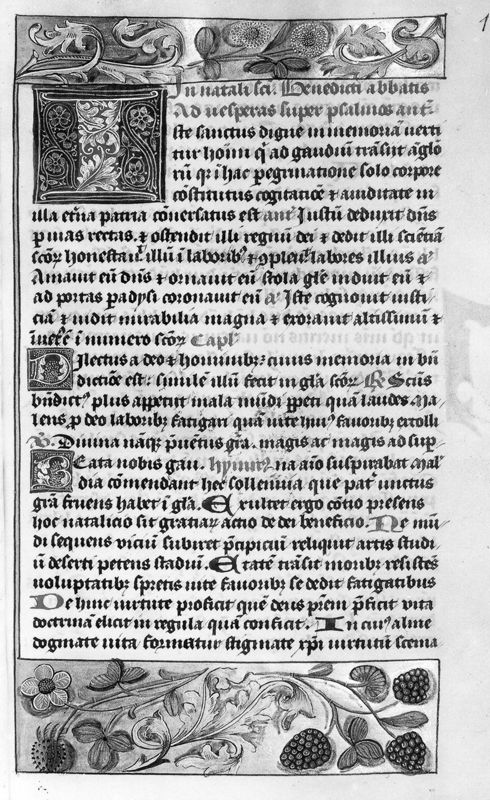 1
In natali sci. Benedicti abbatis
Ad vesperas super psalmos ant.
Iste sanctus digne in memoriā verti
tur hoīm q̄ ad gaudiū trāsiit āglo
rū qr ī hac pegrinatione solo corpore
cōstitutus cogitatiōe & auiditate in
illa etn̄a patria cōuersatus est ant Iustū deduxit dn̄s
p uias rectas. & ostendit illi regnū dei & dedit illi sciētiā
scōr honestauit illū ī laborib9 & 9pleuit labores illius
Amauit eū dn̄s & ornauit eū stola gle induit eū &
ad portas padysi coronauit eū Iste cognouit iusti
ciā & uidit mirabilia magna & exorauit altissimū &
ī numero scōr Capl
Dilectus a deo & hominibz cuius memoria in bn̄
dictiōe est. similē illū fecit in gl̄a scōr
bn̄dict9 plus appetiit mala mūdi ppeti quā laudes ma
lens p deo laborib9 fatigari quā uite hui9 fauorib9 extolli
Diuina nāqz puentus grā. magis ac magis ad sup
Beata nobis gau. hymn9 na aīo suspirabat
dia cōmendant hec sollennia que patr unctus
grā fruens habet ī gl̄a. Exultet ergo cōtio presens
hoc natalicio sit gratiar actio de dei beneficio. Ne mū
di sequens viciū subiret pcipiciū reliquit artis studi
ū deserti petens stadiū. Etatē trāsit morib9 resistēs
uoluptatib9 spretis uite fauorib9 se dedit fatigatibus
De hinc uirtute proficit quē deus prēm pficit vita
doctrinā elicit in regula quā conficit. In cui9 alme
dogmate uita formatur stigmate xpi uirtutū scema